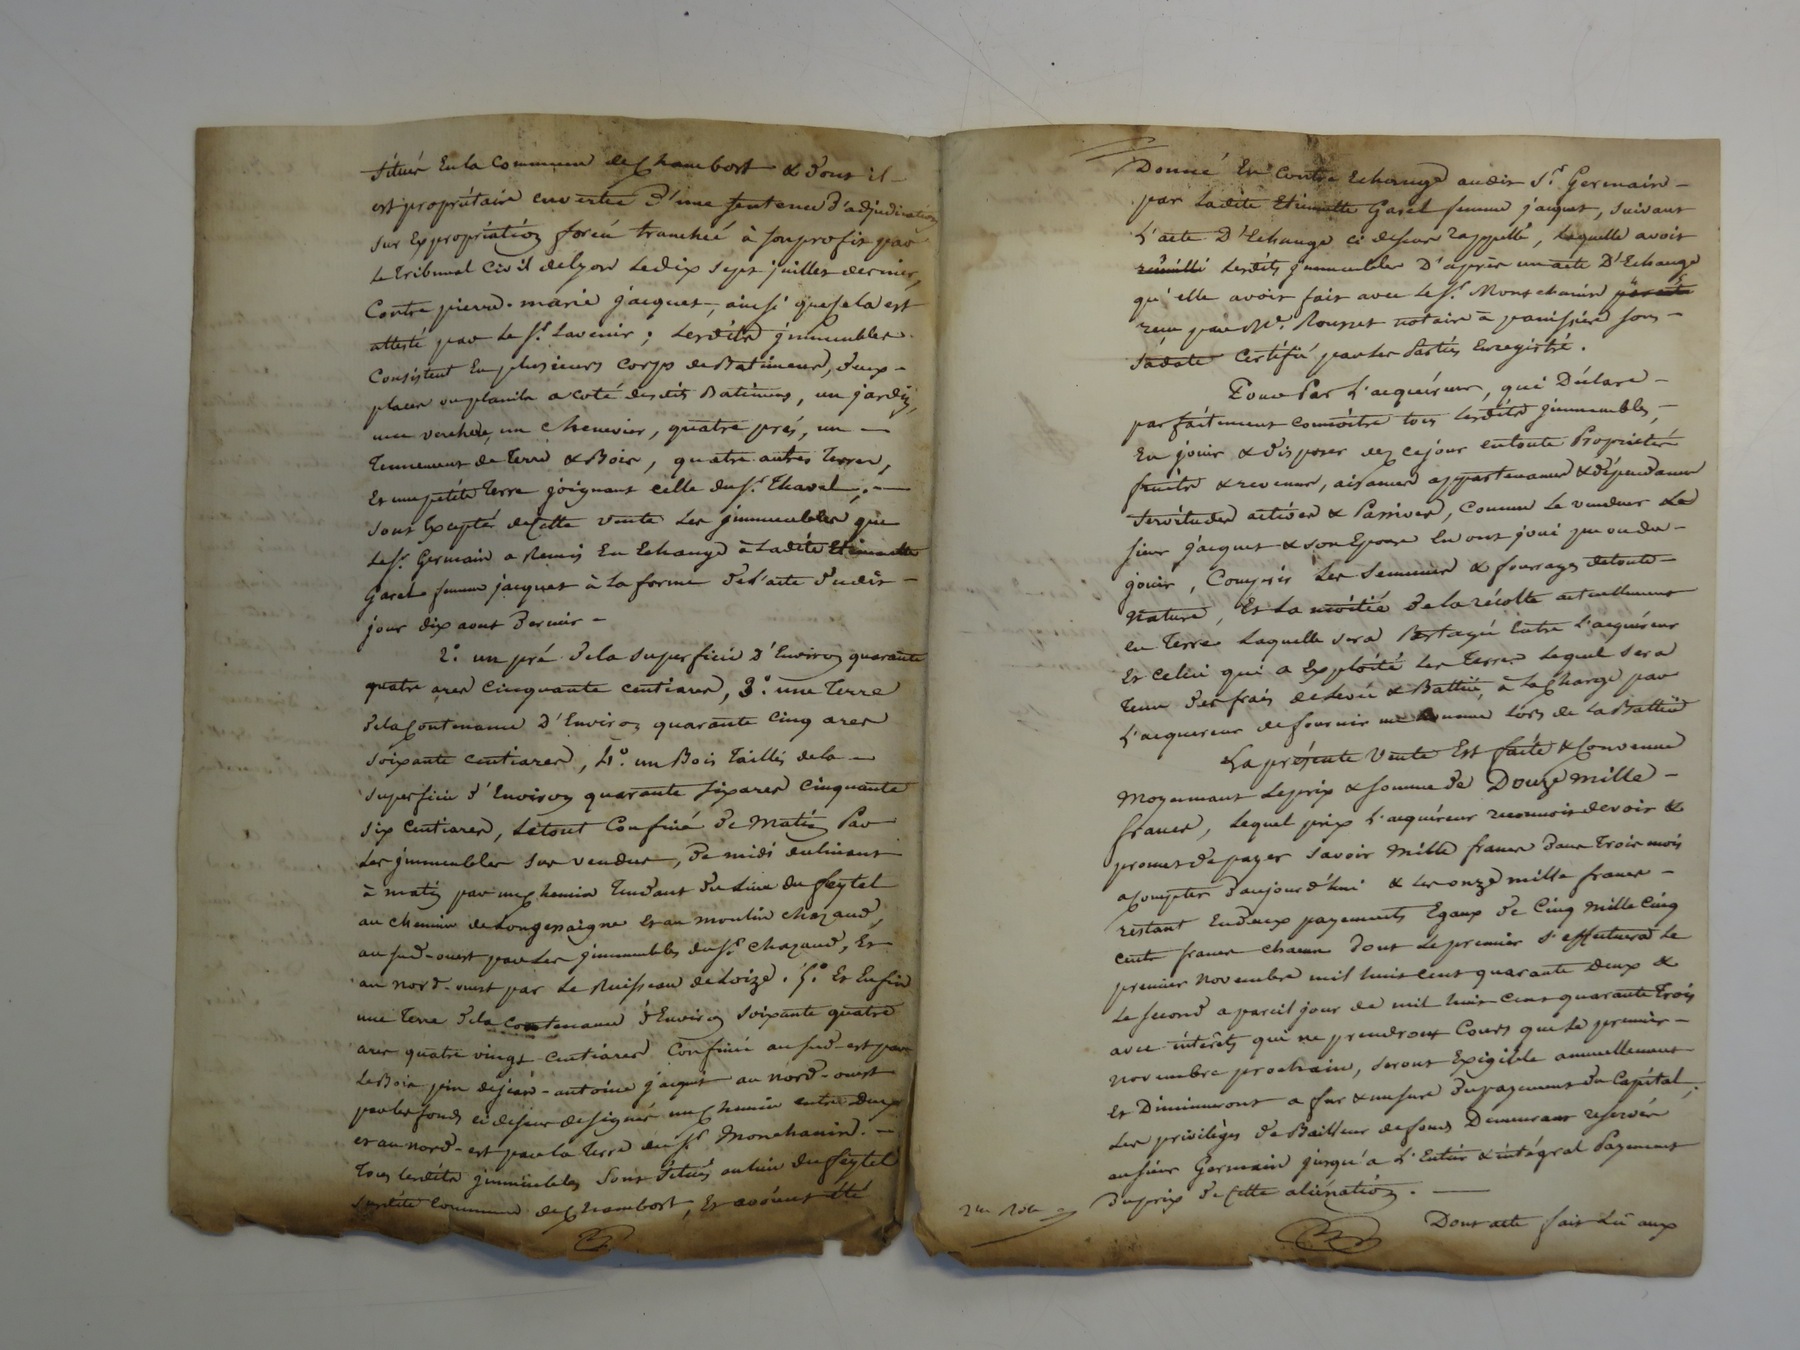 situés En la Commune de Chambost & dont il
est propriétaire en vertu d'une sentence d'adjudication
sur Expropriation forcée tranchée à son profit par
le tribunal Civil de lyon le dix sept juillet dernier,
Contre pierre-marie jacquet, ainsi que cela est
attesté par le Sr. Lavenir; lesdits jmmeubles
Consistent En plusieurs corps de Batimens, deux
places ou planils a coté desdits Batimens, un jardin,
une verchere, un Chenevier, quatre prés, un
Tennement de Terre & Bois, quatre autres Terres,
Et une petite Terre joignant celle du Sr. Thaval;.
sont Exceptés de Cette vente les jmmeubles que
le Sr. Germain a Remis En Echange à Ladite Etiennette
Garel femme jacquet à la forme de l'acte dudit
jour dix aout Dernier
2.° un pré de la superficie d'Environ quarante
quatre ares Cinquante centiares, 3.° une Terre
de la Contenance D'Environ quarante Cinq ares
soixante centiares, 4.° un Bois Taillis de la
superficie d'Environ quarante six ares Cinquante
six Centiares, Le tout Confiné de Matin Par
les jmmeubles sus vendus, de midi déclinant
à matin par un Chemin Tendant du Lieu du feytel
au Chemin de Longessaigne et au moulin Chazaud,
au sud-ouest par Les jmmeubles du Sr. Chazaud, Et
au nord-ouest par Le Ruisseau de Loize. 5.° Et Enfin
une Terre de la Contenance d'Environ soixante quatre
ares quatre vingt Centiares Confinée au sud-est par
Le Bois pin de jean-antoine jacquet au nord-ouest
par les fonds ci dessus designés un Chemin entre Deux
et au nord-est par la Terre du Sr. Monchanin.
Tous lesdits jmmeubles sont situés au lieu du feytel
susdite Commune de Chambost, Et avoient été
Donné En Contre Echange audit Sr. Germain
par Ladite Etiennette Garel femme jacquet, suivant
L'acte D'Echange ci dessus rappellé, Laquelle avoit
Lesdits jmmeubles D'après un acte D'Echange
qu'elle avoit fait avec le Sr. Monchanin
reçu par Me. Rousset notaire à panissière sous
sa date Certifié par les Parties Enregistré.
Pour Par L'acquéreur, qui Déclare
parfaitement connoitre tous lesdits jmmeubles,
En jouir & disposer dez ce jour en toute Proprieté
fruits & revenus, aisances appartenances & dépendances
servitudes actives & Passives, Comme le vendeur Le
sieur jacquet & son Epouse En ont joui pu ou du
jouir, Compris Les semences & fourrages de toute
Nature, Et La moitié de la récolte actuellement
en Terre Laquelle sera Partagée Entre L'acquéreur
Et Celui qui a Exploité Les Terres lequel sera
Tenu des frais de Levée & Battue, à La Charge par
L'acquereur de fournir un homme Lors de La Battue
La présente Vente Est faite & Convenue
Moyennant Le prix & somme de Douze mille
francs, Lequel prix L'acquéreur reconnoit devoir &
promet de payer savoir Mille francs dans Trois mois
a Compter d'aujourd'hui & Les onze mille francs
restant En deux payements Egaux de Cinq Mille Cinq
cents francs chacun dont Le premier s'effectuera Le
premier Novembre mil huit Cent quarante Deux &
Le second a pareil jour de mil huit Cent quarante Trois
avec intérêts qui ne prendront Cours que Le premier
novembre prochain, seront Exigible annuellement
Et Diminueront a fur & mesure du payement du Capital;
Les privilèges de Bailleur de fonds Demeurant reservés
au sieur Germain jusqu'à L'Entier & intégral Payement
du prix de Cette aliénation.
2me Role
Dont acte fait Lû aux